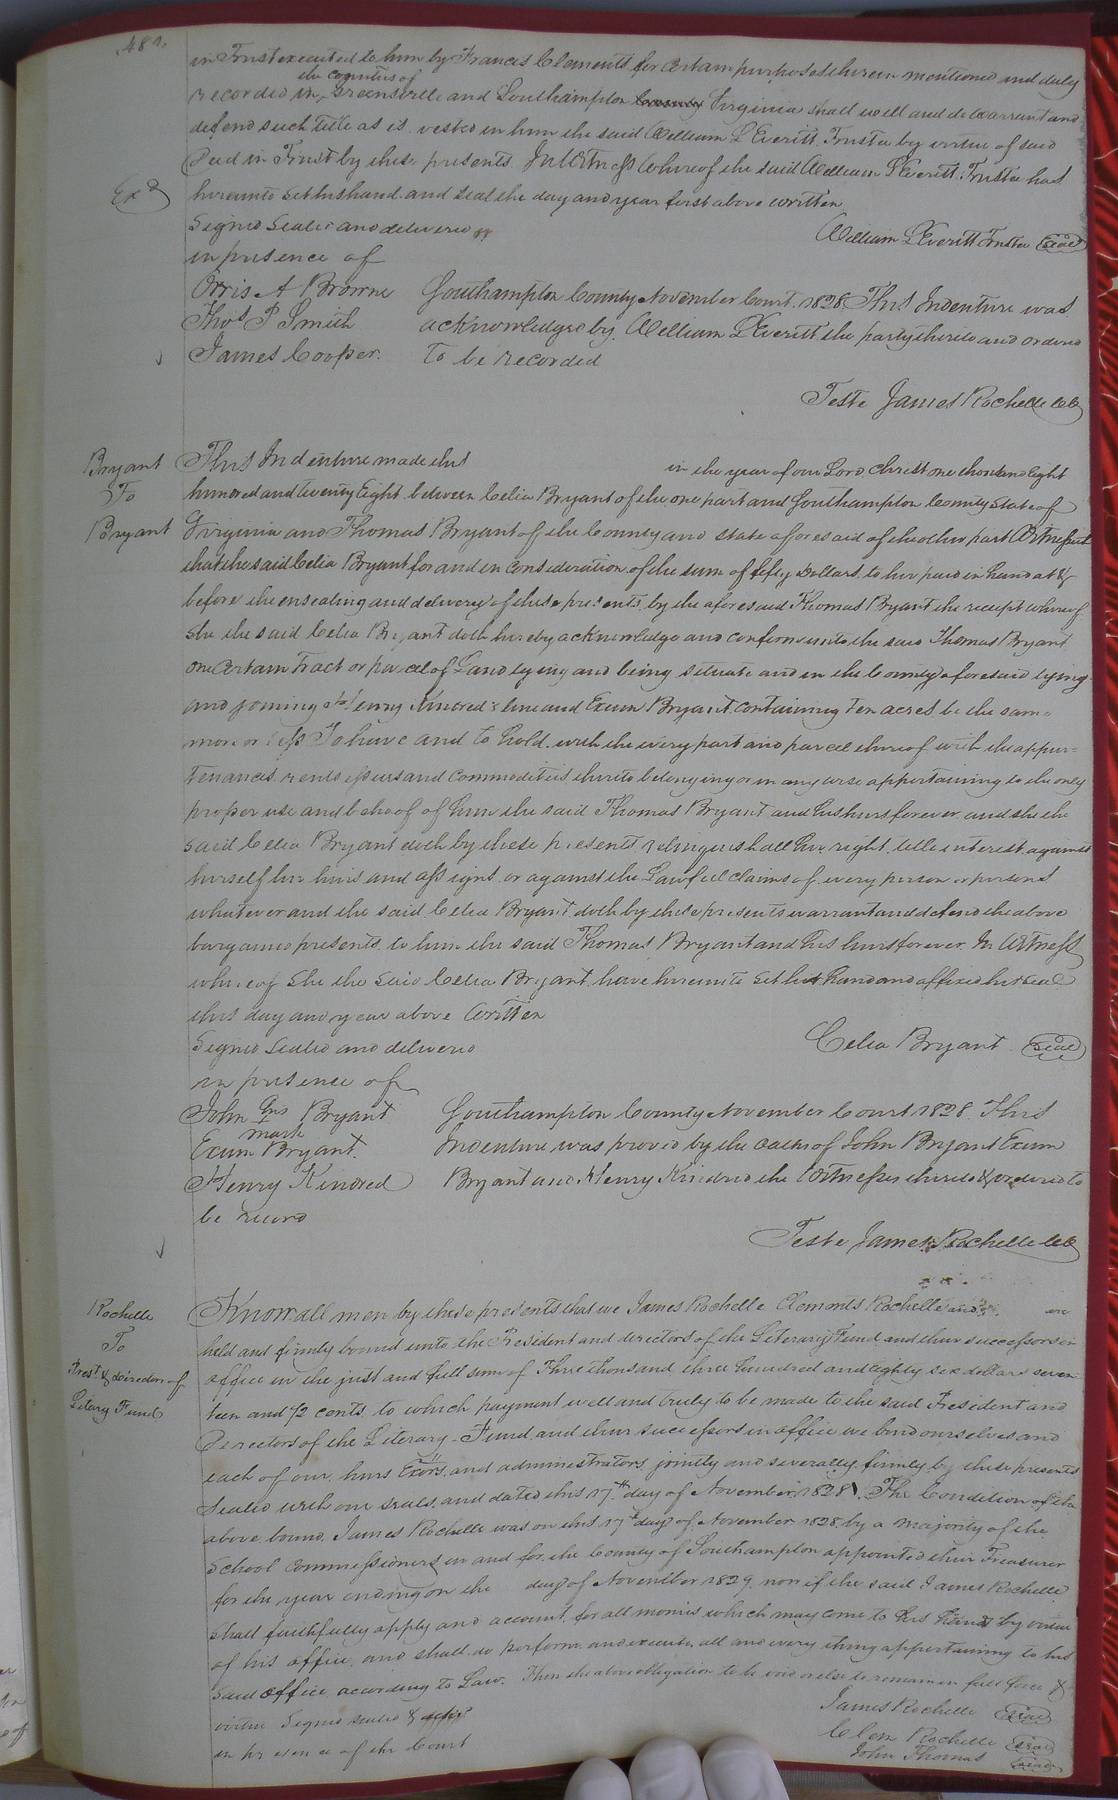 484.
in Trust executed to him by Francis Clements for certain purposes therein mentioned and duly
the counties of
recorded in Greensville and Southampton County Virginia shall well and do warrant and
defend such title as is vested in him the said William L Everitt Trustee by virtue of said
Deed in Trust by these presents. In Witness Whereof the said William L Everitt Trustee has
Exd
hereunto set his hand and seal the day and year first above written
Signed Sealed and delivered
William L Everitt Trustee Seal
in presence of
Orris A Browne
Southampton County November Court 1828 This Indenture was
Thos P Smith
acknowledged by William L Everitt the party thereto and ordered
James Cooper.
to be recorded
Teste James Rochelle CC
Bryant
To
Bryant
This Indenture made this in the year of our Lord Christ one thousand Eight
hundred and twenty Eight between Celia Bryant of the one part and Southampton County State of
Virginia and Thomas Bryant of the County and state afforesaid of the other part Witnesseth
that the said Celia Bryant for and in consideration of the sum of fifty Dollars to her paid in hand at &
before the ensealing and delivery of these presents by the aforesaid Thomas Bryant the receipt whereof
She the said Celia Bryant doth hereby acknowledge and confirm unto the said Thomas Bryant
one Certain Tract or parcel of Land lying and being situate and in the County aforesaid lying
and joining Henry Kindred's line and Exum Bryant containing Ten acres be the same
more or less To have and to hold with the every part and parcel thereof with the appur=
tenances rents issues and commodities thereto belonging or in any wise appertaining to the only
proper use and behoof of him the said Thomas Bryant and his heirs forever and she the
said Celia Bryant doth by these presents relinquish all her right title interest against
herself her heirs and assigns or against the Lawfull claims of every person or persons
whatever and the said Celia Bryant doth by these presents warrant and defend the above
bargained presents to him the said Thomas Bryant and his heirs forever. In Witness
whereof She the said Celia Bryant have hereunto set her hand and affixed her seal
this day and year above Written
Signed Sealed and delivered
Celia Bryant Seal
in presence of
John his Bryant
mark
Southampton County November Court 1828 This
Exum Bryant.
Indenture was proved by the oaths of John Bryant Exum
Henry Kindred
Bryant and Henry Kindred the Witnesses thereto & ordered to
be record
Teste James Rochelle CC
Rochelle
To
Prest. & Directors of
Litary Fund
Know all men by these presents that we James Rochelle Clements Rochelle and are
held and firmly bound unto the President and directors of the Literary Fund and their successors in
office in the just and full sum of Three thousand three hundred and eighty six dollars seven
teen and 1/2 cents to which payment well and truly to be made to the said President and
Directors of the Literary Fund and their successors in office we bind ourselves and
each of our heirs Exors. and administrators jointly and severally firmly by these presents
Sealed with our seals and dated this 17th day of November 1828. The Condition of the
above bound James Rochelle was on this 17th day of November 1828 by a majority of the
School commissioners in and for the County of Southampton appointed their Treasurer
for the year ending on the day of November 1829. now if the said James Rochelle
shall faithfully apply and account for all monies which may come to his hands by virtue
of his office and shall do perform and execute all and every thing appertaining to his
said office according to Law. Then the above obligation to be void or else to remain in full force &
virtue Signed sealed &
James Rochelle Seal
in presence of the Court
Clem Rochelle Seal
John Thomas Seal